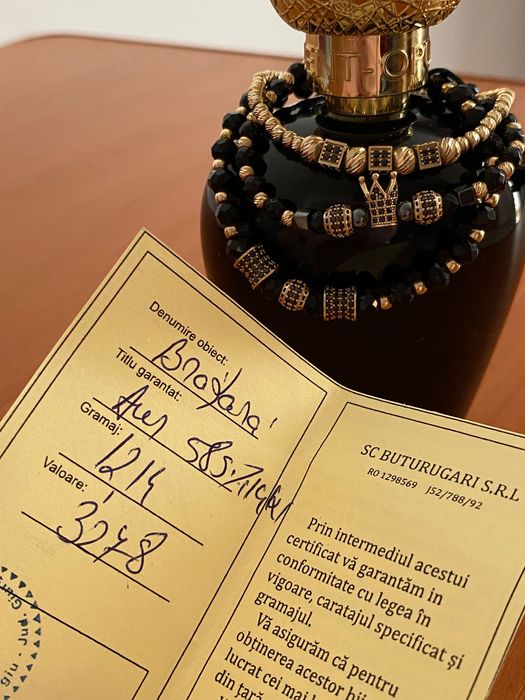 Denumire obiect:
Brățară
Titlu garantat:
Aur 585
Gramaj:
Valoare:
3278
SC BUTURUGARI S.R.L
RO 1298569 J52/788/92
Prin intermediul acestui
certificat vă garantăm in
conformitate cu legea în
vigoare, caratajul specificat și
gramajul.
Vă asigurăm că pentru
obținerea acestor
lucrat cei mai
din